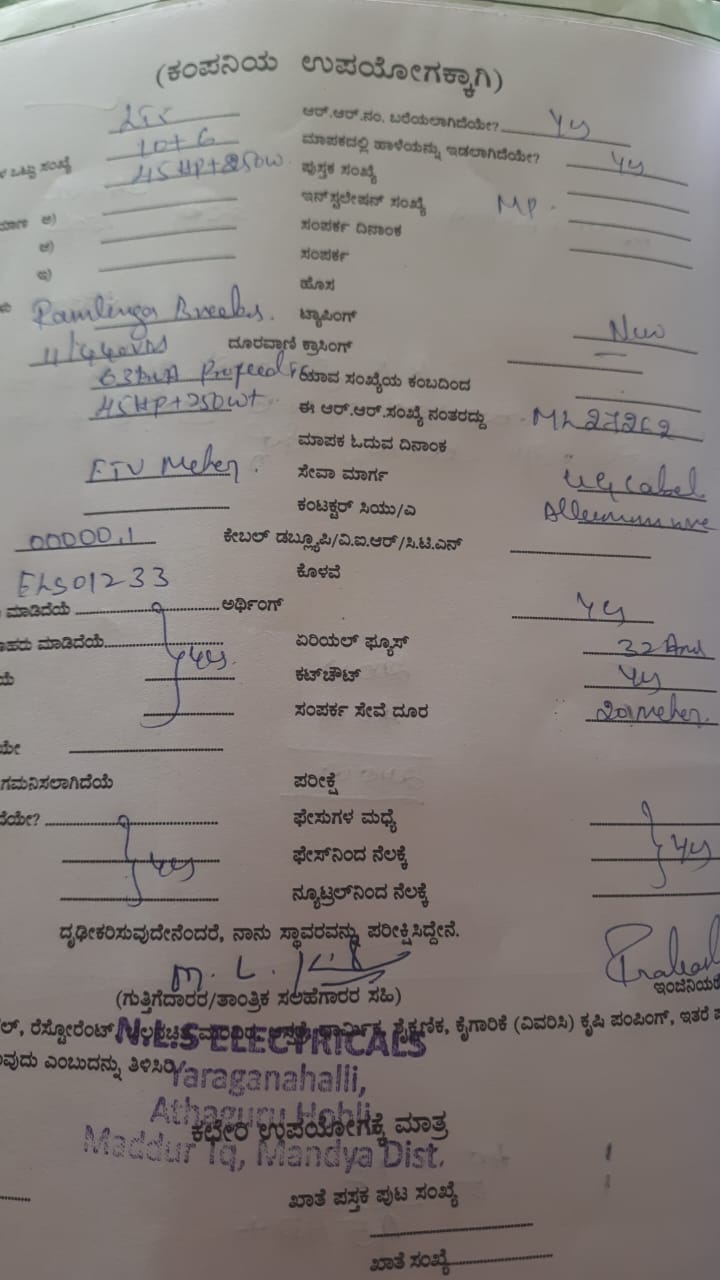 (ಕಂಪನಿಯ ಉಪಯೋಗಕ್ಕಾಗಿ)
ಆರ್.ಆರ್.ನಂ. ಬರೆಯಲಾಗಿದೆಯೇ? Yes
10+6 ಮಾಪಕದಲ್ಲಿ ಹಾಳೆಯನ್ನು ಇಡಲಾಗಿದೆಯೇ? Yes
ಒಟ್ಟು ಸಂಖ್ಯೆ 45HP+250W ಪುಸ್ತಕ ಸಂಖ್ಯೆ
ಇನ್‌ಸ್ಟಲೇಷನ್ ಸಂಖ್ಯೆ MP.
ಅ) ಸಂಪರ್ಕ ದಿನಾಂಕ
ಆ) ಸಂಪರ್ಕ
ಇ) ಹೊಸ
Ramlinga ಟ್ಯಾಪಿಂಗ್ New
11/440 ದೂರವಾಣಿ ಕ್ರಾಸಿಂಗ್
63 ಯಾವ ಸಂಖ್ಯೆಯ ಕಂಬದಿಂದ
45HP+250Wt ಈ ಆರ್.ಆರ್.ಸಂಖ್ಯೆ ನಂತರದ್ದು ML27262
ಮಾಪಕ ಓದುವ ದಿನಾಂಕ
ETV Meter. ಸೇವಾ ಮಾರ್ಗ UG Cabel
ಕಂಟಕ್ಟರ್ ಸಿಯು/ಎ
00000.1 ಕೇಬಲ್ ಡಬ್ಲ್ಯೂಪಿ/ವಿ.ಐ.ಆರ್/ಸಿ.ಟಿ.ಎನ್
ELS01233 ಕೊಳವೆ
ಮಾಡಿದೆಯೆ ಅರ್ಥಿಂಗ್ Yes
ಮಾಡಿದೆಯೆ ಏರಿಯಲ್ ಫ್ಯೂಸ್ 32
yes. ಕಟ್‌ಔಟ್ Yes
ಸಂಪರ್ಕ ಸೇವೆ ದೂರ 20 Meter.
ಗಮನಿಸಲಾಗಿದೆಯೆ ಪರೀಕ್ಷೆ
ಫೇಸುಗಳ ಮಧ್ಯೆ
yes ಫೇಸ್‌ನಿಂದ ನೆಲಕ್ಕೆ yes
ನ್ಯೂಟ್ರಲ್‌ನಿಂದ ನೆಲಕ್ಕೆ
ದೃಢೀಕರಿಸುವುದೇನೆಂದರೆ, ನಾನು ಸ್ಥಾವರವನ್ನು ಪರೀಕ್ಷಿಸಿದ್ದೇನೆ.
M. L.
(ಗುತ್ತಿಗೆದಾರರ/ತಾಂತ್ರಿಕ ಸಲಹೆಗಾರರ ಸಹಿ)
ರೆಸ್ಟೋರೆಂಟ್, ಧಾರ್ಮಿಕ, ಶೈಕ್ಷಣಿಕ, ಕೈಗಾರಿಕೆ (ವಿವರಿಸಿ) ಕೃಷಿ ಪಂಪಿಂಗ್, ಇತರೆ
N.L.S ELECTRICALS
ಎಂಬುದನ್ನು ತಿಳಿಸಿರಿ
Yaraganahalli,
Athaguru Hobli
ಕಛೇರಿ ಉಪಯೋಗಕ್ಕೆ ಮಾತ್ರ
Maddur Tq, Mandya Dist.
ಖಾತೆ ಪಸ್ತಕ ಪುಟ ಸಂಖ್ಯೆ
ಖಾತೆ ಸಂಖ್ಯೆ